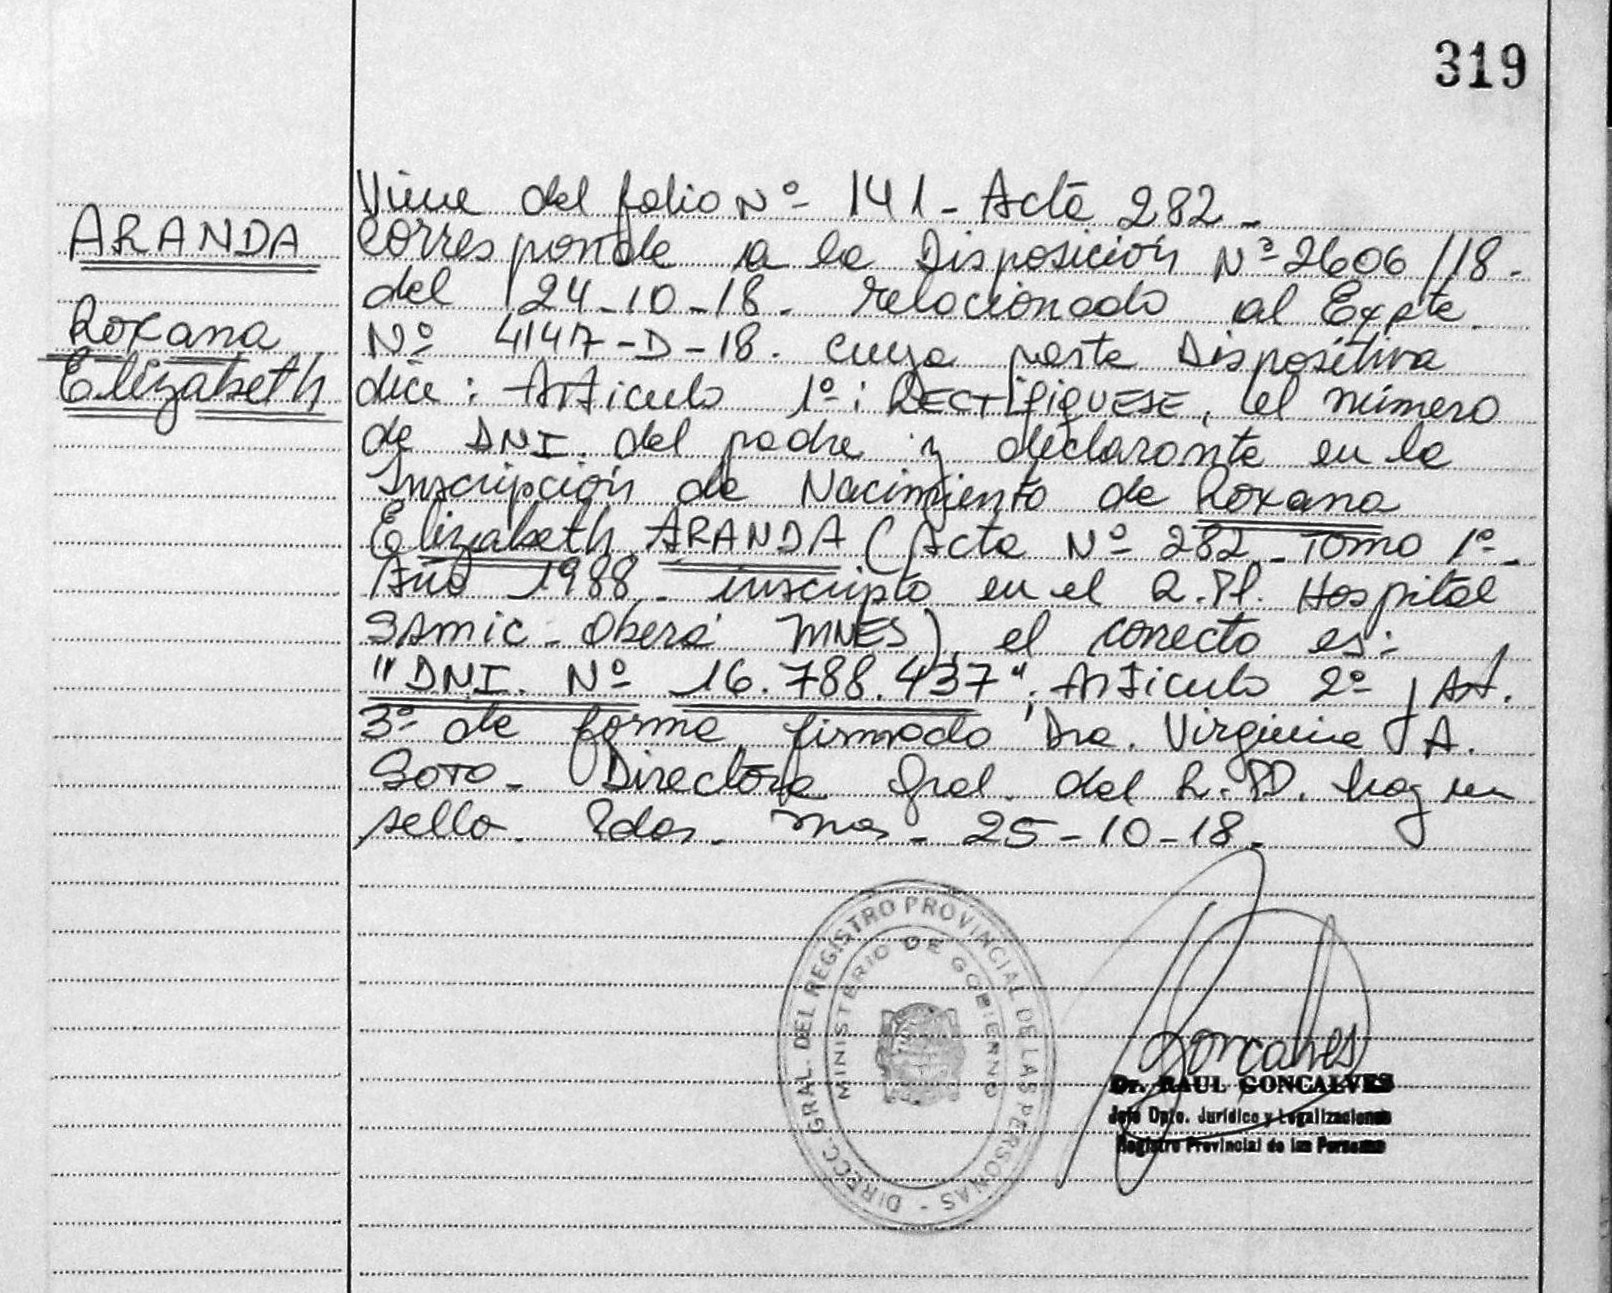 319
ARANDA
Roxana
Elizabeth
Viene del folio Nº 141 - Acta 282 -
Corresponde a la Disposición Nº 2606/18 -
del 24-10-18. relacionado al Expte.
Nº 4147-D-18. cuya parte Dispositiva
dice: Articulo 1º: RECTIFIQUESE, el número
de DNI. del padre y declarante en la
Inscripción de Nacimiento de Roxana
Elizabeth ARANDA (Acta Nº 282 - Tomo 1º -
Año 1988 - inscripto en el R.Pl. Hospital
SAMIC - Oberá MNES), el correcto es:
"DNI. Nº 16.788.437". Articulo 2º, Art.
3º de forma, firmado Dra. Virginia A.
Soto - Directora Gral. del R.PP. hay un
sello. Pdas. Mnes - 25-10-18.
DIRECC. GRAL. DEL REGISTRO PROVINCIAL DE LAS PERSONAS -
MINISTERIO DE GOBIERNO
Goncalves
Dr. RAUL GONCALVES
Jefe Dpto. Jurídico y Legalizaciones
Registro Provincial de las Personas